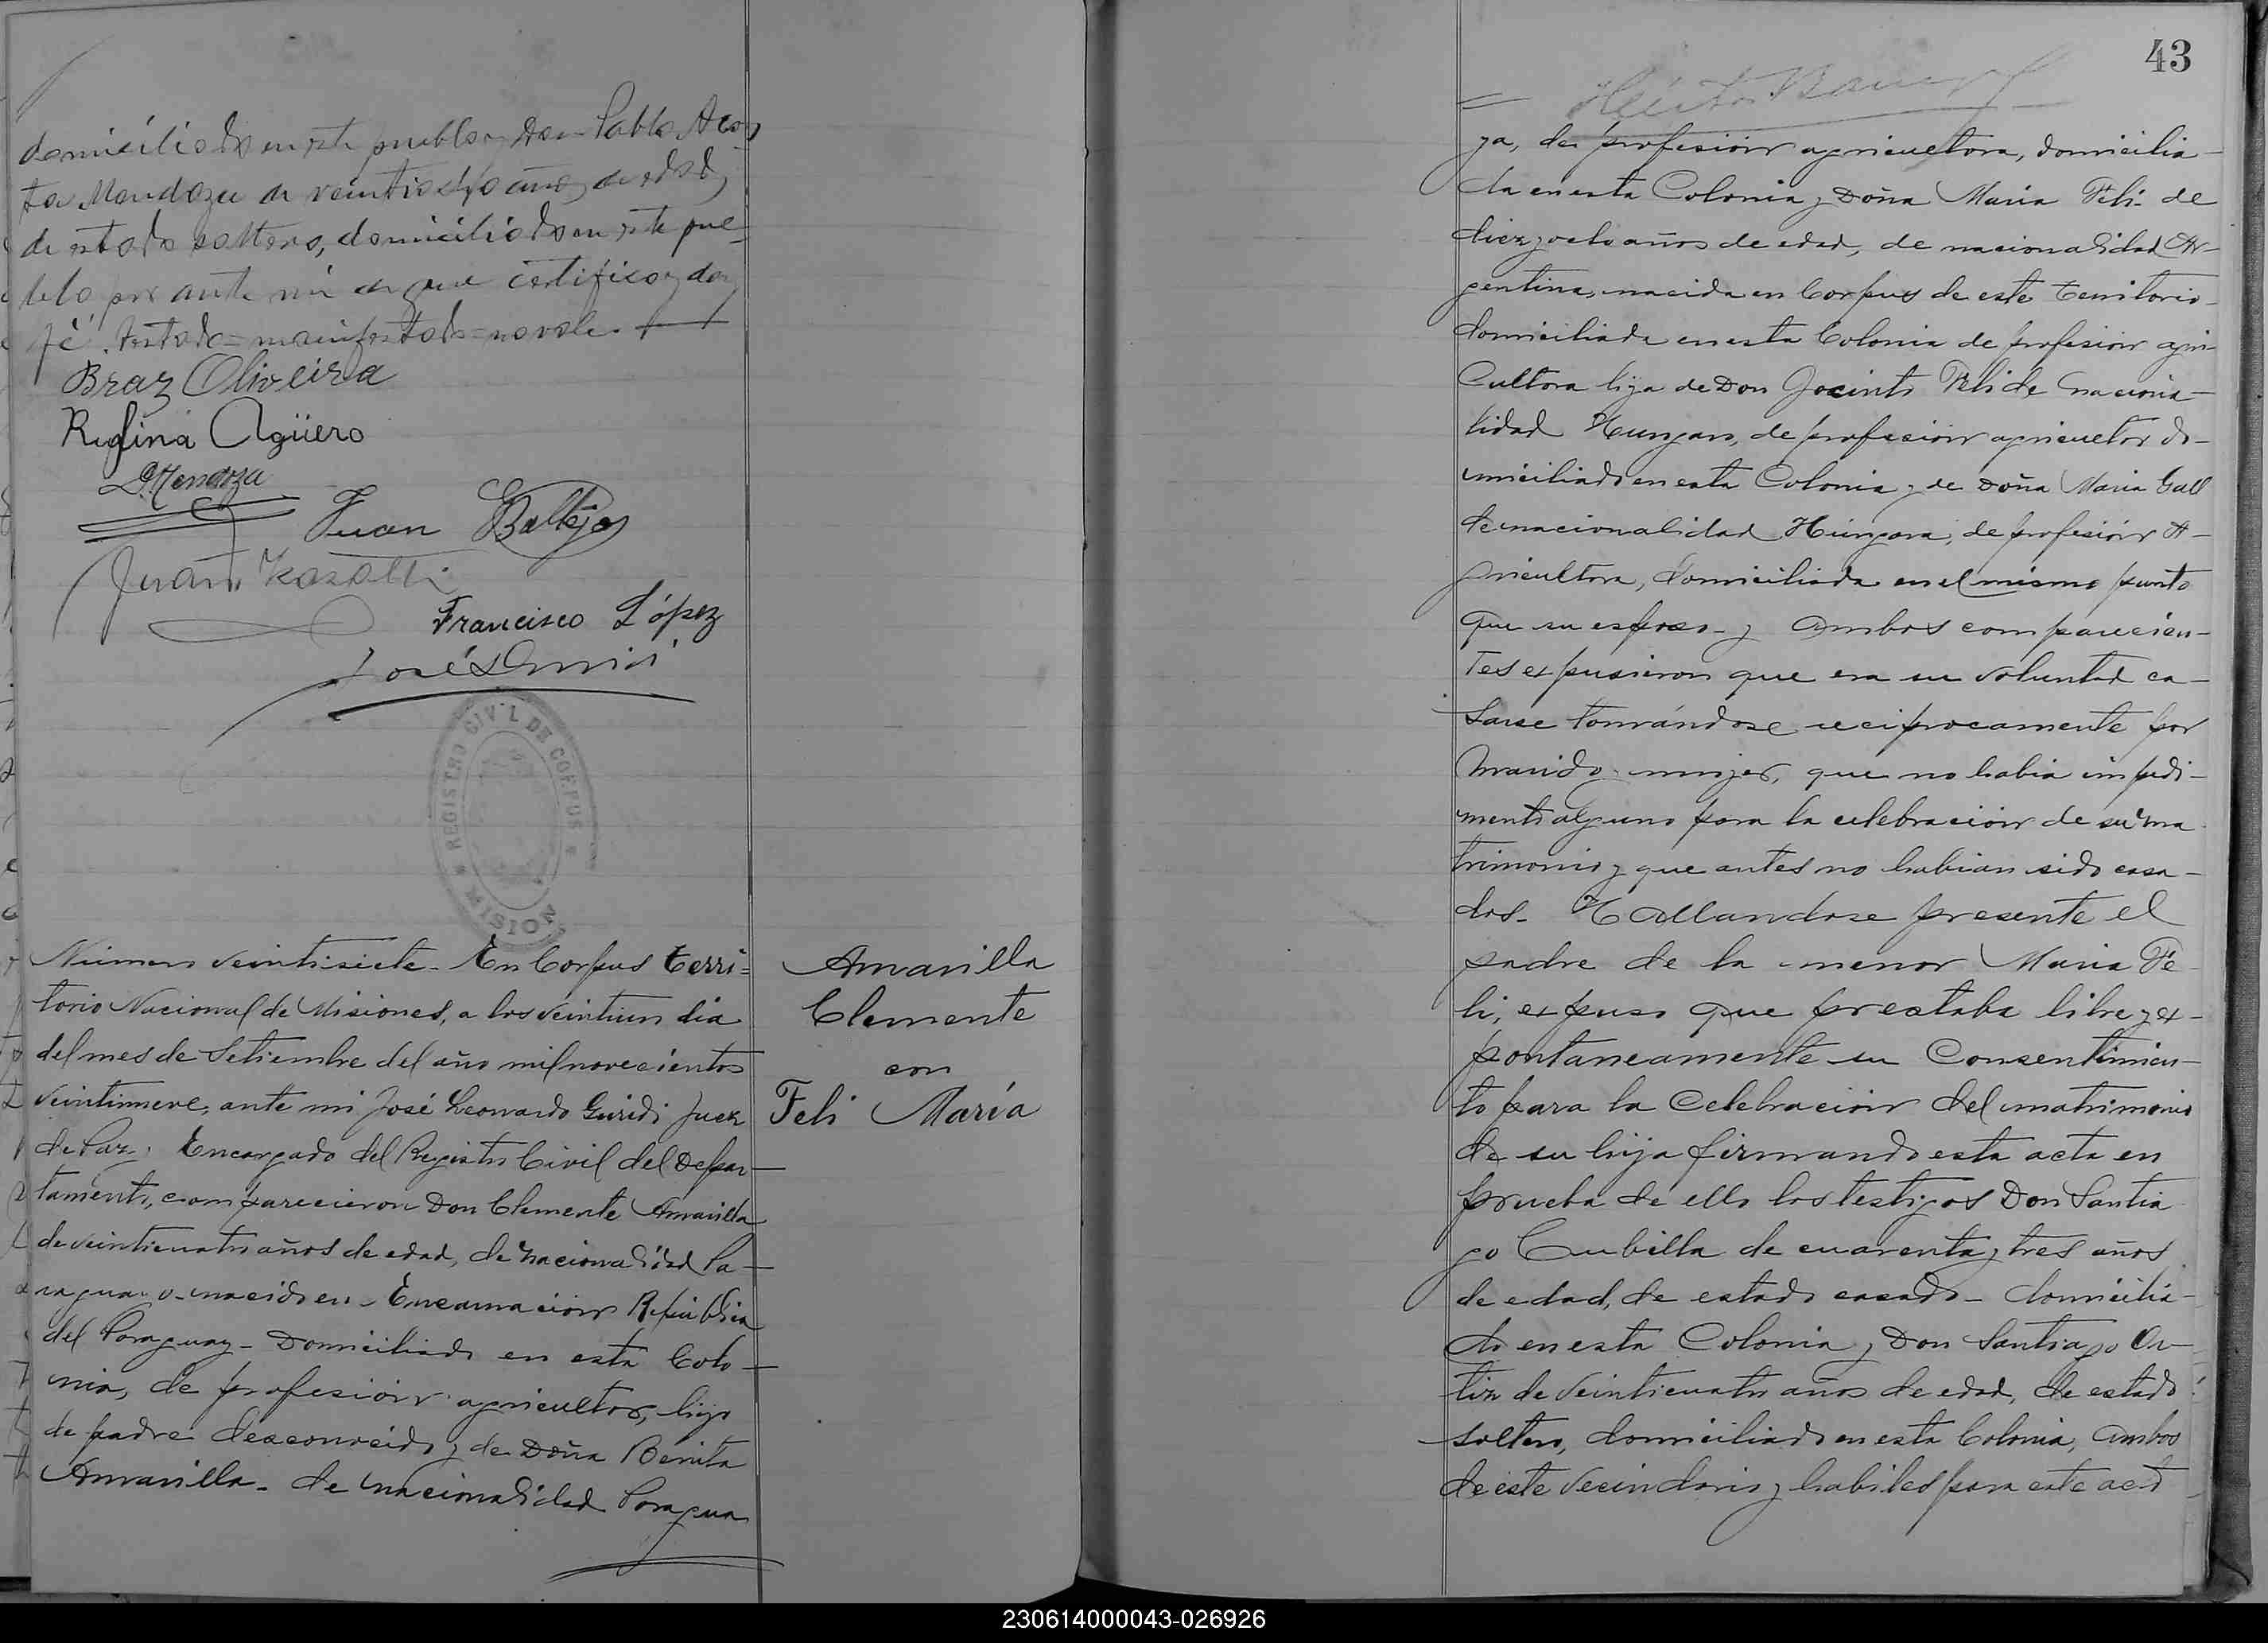 domiciliado en este pueblo y Don Pablo Acos
ta Mendoza de veintiocho años de edad,
de estado soltero, domiciliado en este pue-
blo por ante mí de que certifico y doy
fé. Testado = manifestado = no vale.
Braz Oliveira
Rufina Agüero
Mendoza
Juan Ballejos
Juan
Francisco López
José
REGISTRO CIVIL DE CORPUS
MISION
Número veintisiete - En Corpus Terri=
torio Nacional de Misiones, a los veintiun dia
del mes de Setiembre del año mil novecientos
veintinueve, ante mi José Leonardo Guridi Juez
de Paz y Encargado del Registro Civil del Depar-
tamento, comparecieron Don Clemente Amarilla
de veinticuatro años de edad, de nacionalidad Pa-
raguayo - nacido en Encarnación República
del Paraguay - Domiciliado en esta Colo-
nia, de profesión agricultor, hijo
de padre desconocido y de Doña Benita
Amarilla - de nacionalidad Paragua
Amarilla
Clemente
con
Feli María
43
ya, de profesión agricultora, domicilia-
da en esta Colonia y Doña Maria Feli de
diez y ocho años de edad, de nacionalidad Ar-
gentina, nacida en Corpus de este territorio -
domiciliada en esta Colonia de profesión agri-
cultora hija de Don Jacinto Feli de naciona-
lidad Hungaro, de profesión agricultor do-
miciliado en esta Colonia y de Doña Maria Gall
de nacionalidad Húngara, de profesión A-
gricultora, domiciliada en el mismo punto
que su esposo - y ambos comparecien-
tes expusieron que era su voluntad ca-
sarse tomándose reciprocamente por
marido y mujer, que no habia impedi-
mento alguno para la celebración de su ma
trimonio y que antes no habian sido casa-
dos - Hallandose presente el
padre de la menor Maria Fe-
li, expuso que prestaba libre y ex-
pontaneamente su Consentimien-
to para la Celebración del matrimonio
de su hija firmando esta acta en
prueba de ello los testigos Don Santia
go Cubilla de cuarenta y tres años
de edad, de estado casado - domicilia-
do en esta Colonia y Don Santiago Or-
tiz de veinticuatro años de edad, de estado
soltero, domiciliado en esta Colonia, ambos
de este vecindario y habiles para este act
230614000043-026926